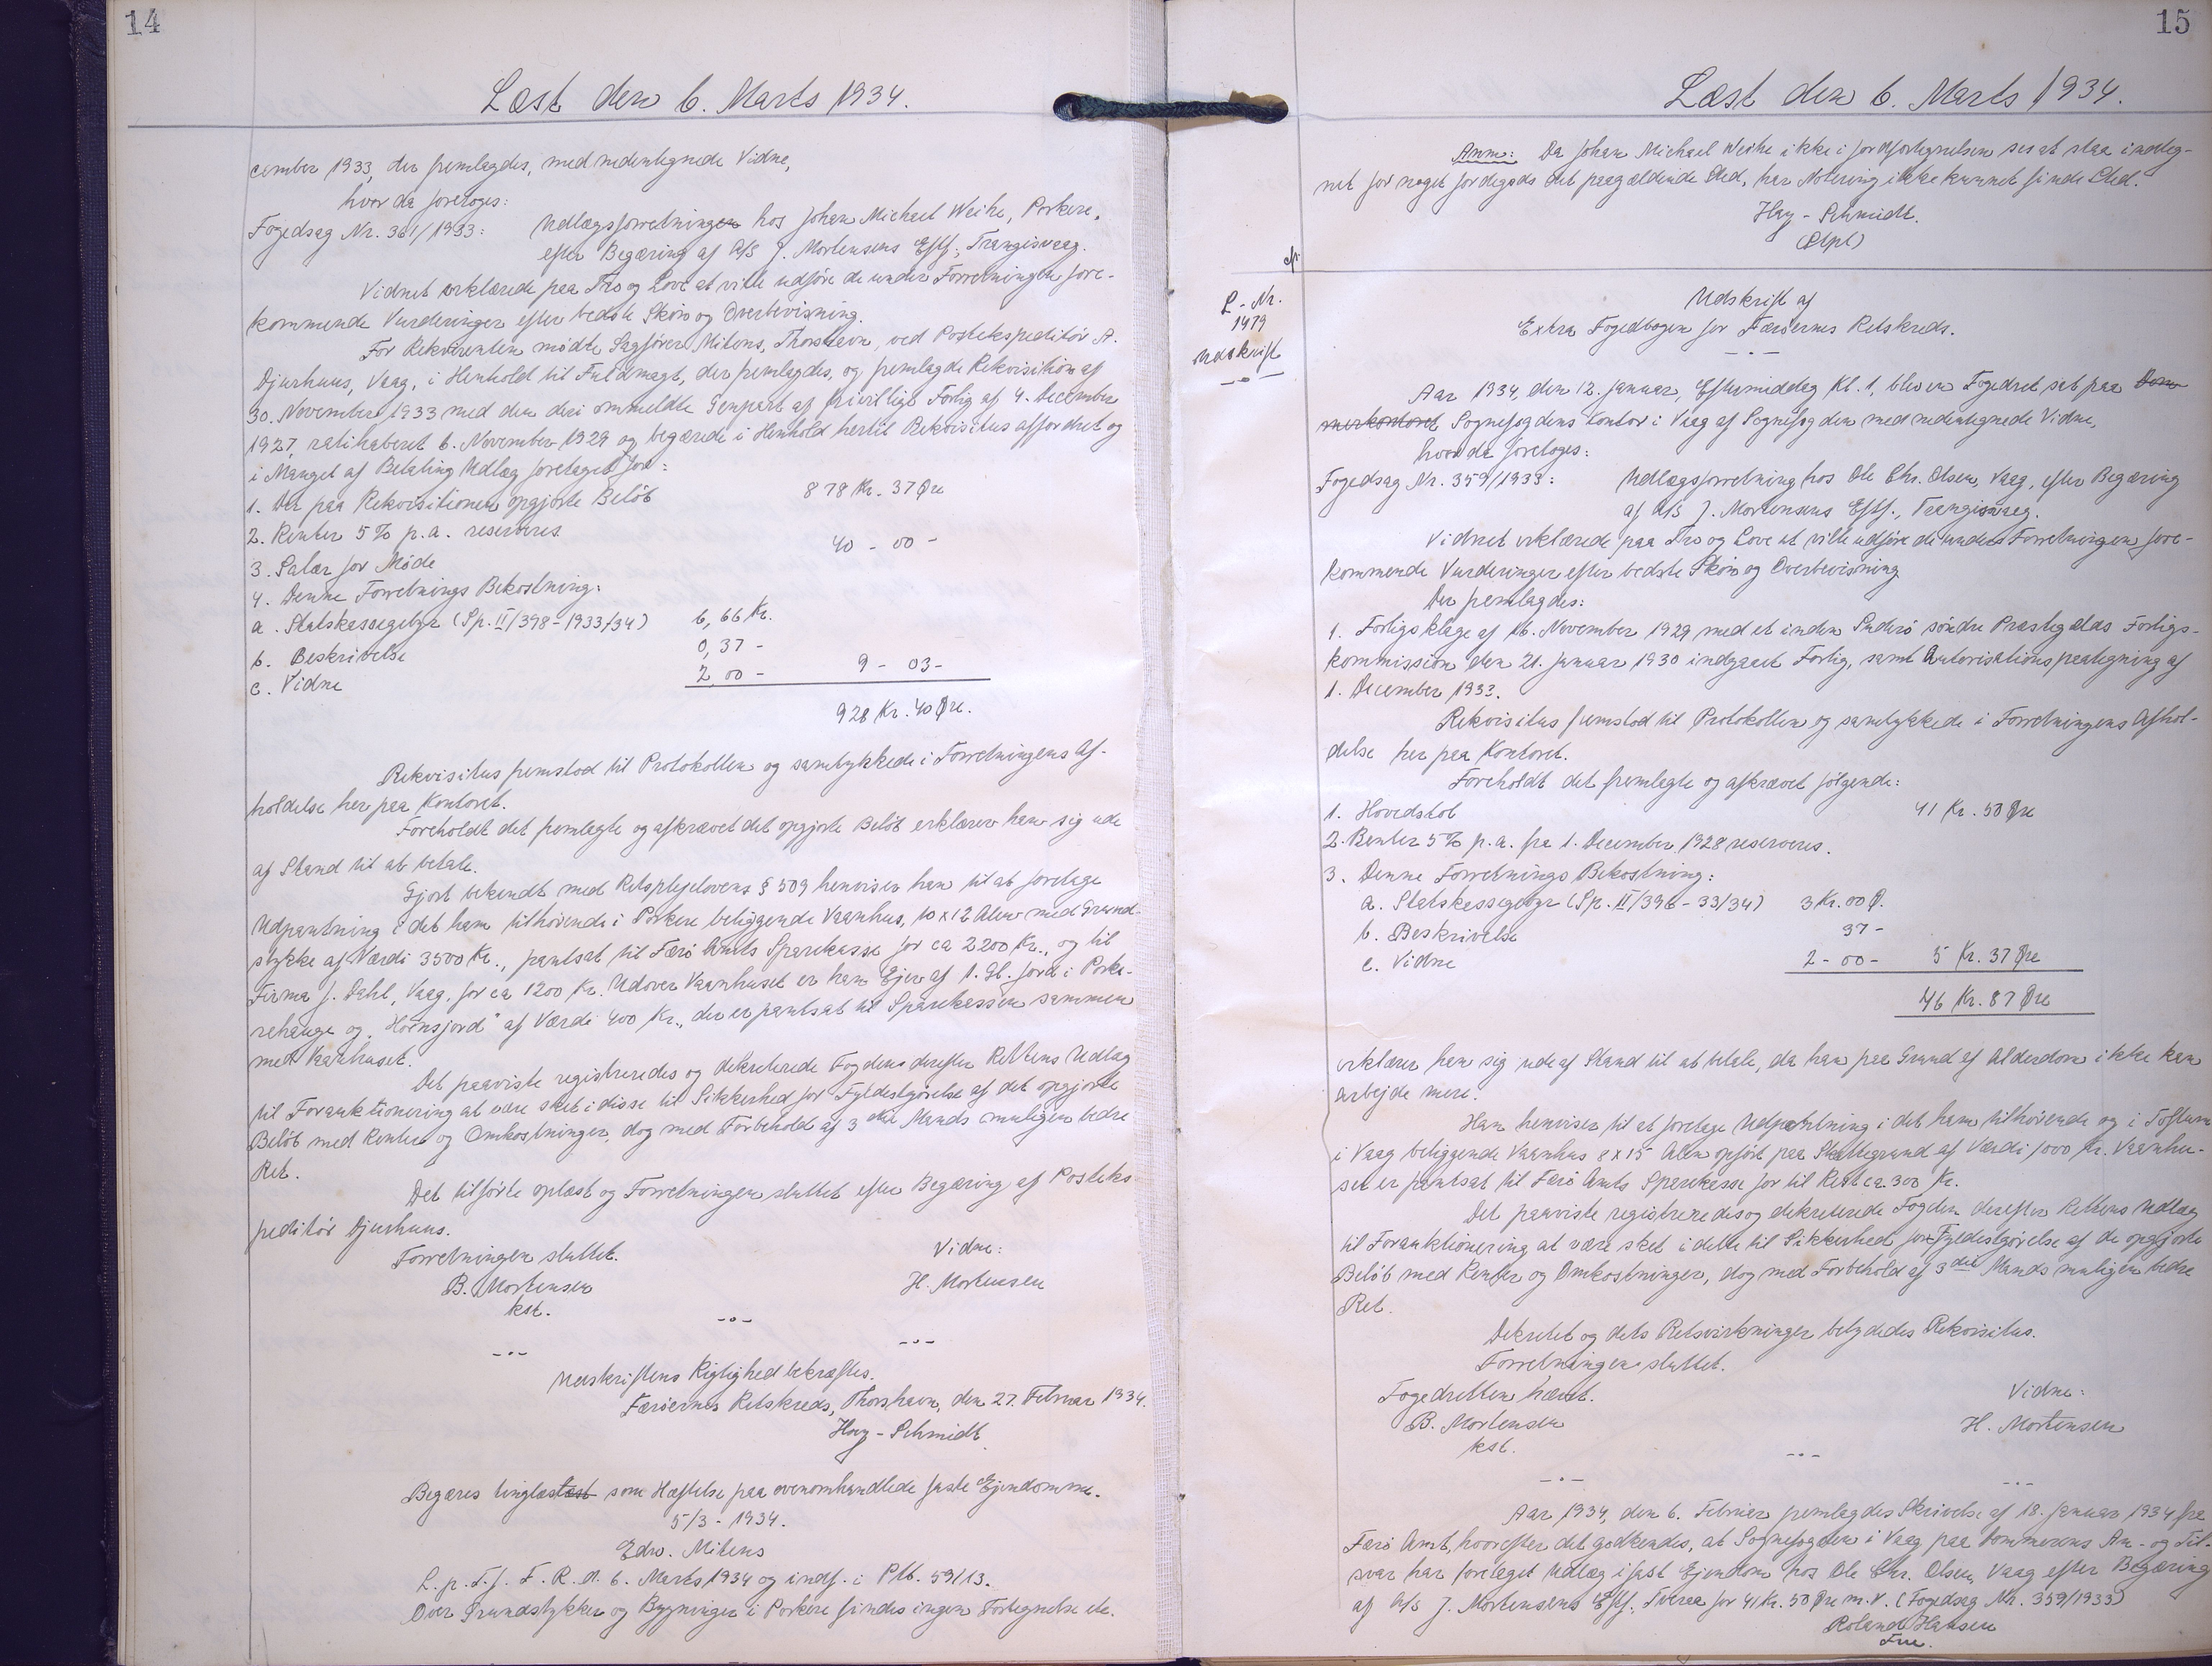 14
Læst den 6. Marts 1934.
cember 1933, der fremlagdes, med nedentegnede Vidne,
hvor da foretoges:
Fogedsag Nr. 361/1933: Udlægsforretningen hos Johan Michael Weihe, Porkere,
efter Begæring af A/S J. Mortensens Eftf., Trangisvaag.
Vidnet erklærede paa Tro og Love at ville udføre de under Forretningen fore-
kommende Vurderinger efter bedste Skøn og Overbevisning.
For Rekvirenten mødte Sagfører Mitens, Thorshavn, ved Postekspeditør A.
Djurhuus, Vaag, i Henhold til Fuldmagt, der fremlagdes, og fremlagde Rekvisition af
30. November 1933 med den deri ommeldte Genpart af frivilligt Forlig af 4. December
1927, ratihaberet 6. November 1929 og begærede i Henhold hertil Rekvisitus affordret og
i Mangel af Betaling Udlæg foretaget for:
1. Det paa Rekvisitionen opgjorte Beløb 878 Kr. 37 Øre
2. Renter 5% p.a. reserveres.
3. Salær for Møde 40 - 00 -
4. Denne Forretnings Bekostning:
a. Statskassegebyr (Sp. II/398-1933/34) 6,66 Kr.
b. Beskrivelse 0,37 -
c. Vidne 2,00 - 9 - 03 -
928 Kr. 40 Øre.
Rekvisitus fremstod til Protokollen og samtykkede i Forretningens Af-
holdelse her paa Kontoret.
Foreholdt det fremlagte og afkrævet det opgjorte Beløb erklærer han sig ude
af Stand til at betale.
Gjort bekendt med Retsplejelovens § 509 henviser han til at foretage
Udpantning i det ham tilhørende i Porkere beliggende Vaanhus, 10 x 12 Alen med Grund-
stykke af Værdi 3500 Kr., pantsat til Færø Amts Sparekasse for ca 2200 Kr., og til
Firma J. Dahl, Vaag, for ca 1200 Kr. Udover Vaanhuset er han Ejer af 1. Gl. Jord i Porke-
rehauge og "Hørnsjord" af Værdi 400 Kr., der er pantsat til Sparekassen sammen
med Vaanhuset.
Det paaviste registreredes og dekreterede Fogden derefter Rettens Udlæg
til Foranktionering at være sket i disse til Sikkerhed for Fyldestgørelse af det opgjorte
Beløb med Renter og Omkostninger, dog med Forbehold af 3die Mands muligen bedre
Ret.
Det tilførte oplæst og Forretningen sluttet efter Begæring af Posteks-
peditør Djurhuus.
Forretningen sluttet. Vidne:
B. Mortensen H. Mortensen
kst.
Udskriftens Rigtighed bekræftes.
Færøernes Retskreds, Thorshavn, den 27. Februar 1934.
Hay-Schmidt
Begæres tinglæst læst som Hæftelse paa ovenomhandlede faste Ejendomme.
5/3 - 1934.
Edw. Mitens
L. p. T. f. F. R. d. 6. Marts 1934 og indf. i Ptb. 59/13.
Over Grundstykker og Bygninger i Porkere findes ingen Fortegnelse etc.
15
Læst den 6. Marts 1934.
Anm: Da Johan Michael Weihe ikke i Jordfortegnelsen ses at staa indteg-
net for noget Jordegods det paagældende Sted, har Notering ikke kunnet finde Sted.
Hay-Schmidt.
L-Nr.
1479
Udskrift
Udskrift af
Extra Fogedbogen for Færøernes Retskreds.
Aar 1934, den 12. Januar, Eftermiddag Kl. 1, blev en Fogedret sat paa Dom-
merkontoret Sognefogdens Kontor i Vaag af Sognefogden med nedentegnede Vidne,
hvor da foretoges:
Fogedsag Nr. 359/1933: Udlægsforretning hos Ole Chr. Olsen, Vaag, efter Begæring
af A/S J. Mortensens Eftf., Trangisvaag.
Vidnet erklærede paa Tro og Love at ville udføre de under Forretningen fore-
kommende Vurderinger efter bedste Skøn og Overbevisning
Der fremlagdes:
1. Forligsklage af 16. November 1929 med et inden Suderø søndre Præstegælds Forligs-
kommission den 21. Januar 1930 indgaaet Forlig, samt Autorisationspaategning af
1. December 1933.
Rekvisitus fremstod til Protokollen og samtykkede i Forretningens Afhol-
delse her paa Kontoret.
Foreholdt det fremlagte og afkrævet følgende:
1. Hovedstol 41 Kr. 50 Øre
2. Renter 5% p.a. fra 1. December 1928 reserveres.
3. Denne Forretnings Bekostning:
a. Statskassegebyr (Sp. II/396-33/34) 3 Kr. 00 Ø.
b. Beskrivelse 37 -
c. Vidne 2 - 00 - 5 Kr. 37 Øre
46 Kr. 87 Øre
erklærer han sig ude af Stand til at betale, da han paa Grund af Alderdom ikke kan
arbejde mere.
Han henviser til at foretage Udpantning i det ham tilhørende og i Toftum
i Vaag beliggende Vaanhus 8 x 15 Alen opført paa Skattegrund af Værdi 1000 Kr. Vaanhu-
set er pantsat til Færø Amts Sparekasse for til Rest ca. 300 Kr.
Det paaviste registreredes og dekreterede Fogden derefter Rettens Udlæg
til Foranktionering at være sket i dette til Sikkerhed for Fyldestgørelse af de opgjorte
Beløb med Renter og Omkostninger, dog med Forbehold af 3die Mands muligen bedre
Ret.
Dekretet og dets Retsvirkninger betydedes Rekvisitus.
Forretningen sluttet.
Fogedretten hævet. Vidne:
B. Mortensen H. Mortensen
kst.
Aar 1934, den 6. Februar fremlagdes Skrivelse af 18. Januar 1934 fra
Færø Amt, hvorefter det godkendes, at Sognefogden i Vaag paa Dommerens An- og Til-
svar har foretaget Udlæg i fast Ejendom hos Ole Chr. Olsen, Vaag efter Begæring
af A/S J. Mortensens Eftf., Tveraa for 41 Kr. 50 Øre m.v. (Fogedsag Nr. 359/1933)
Roland Hansen